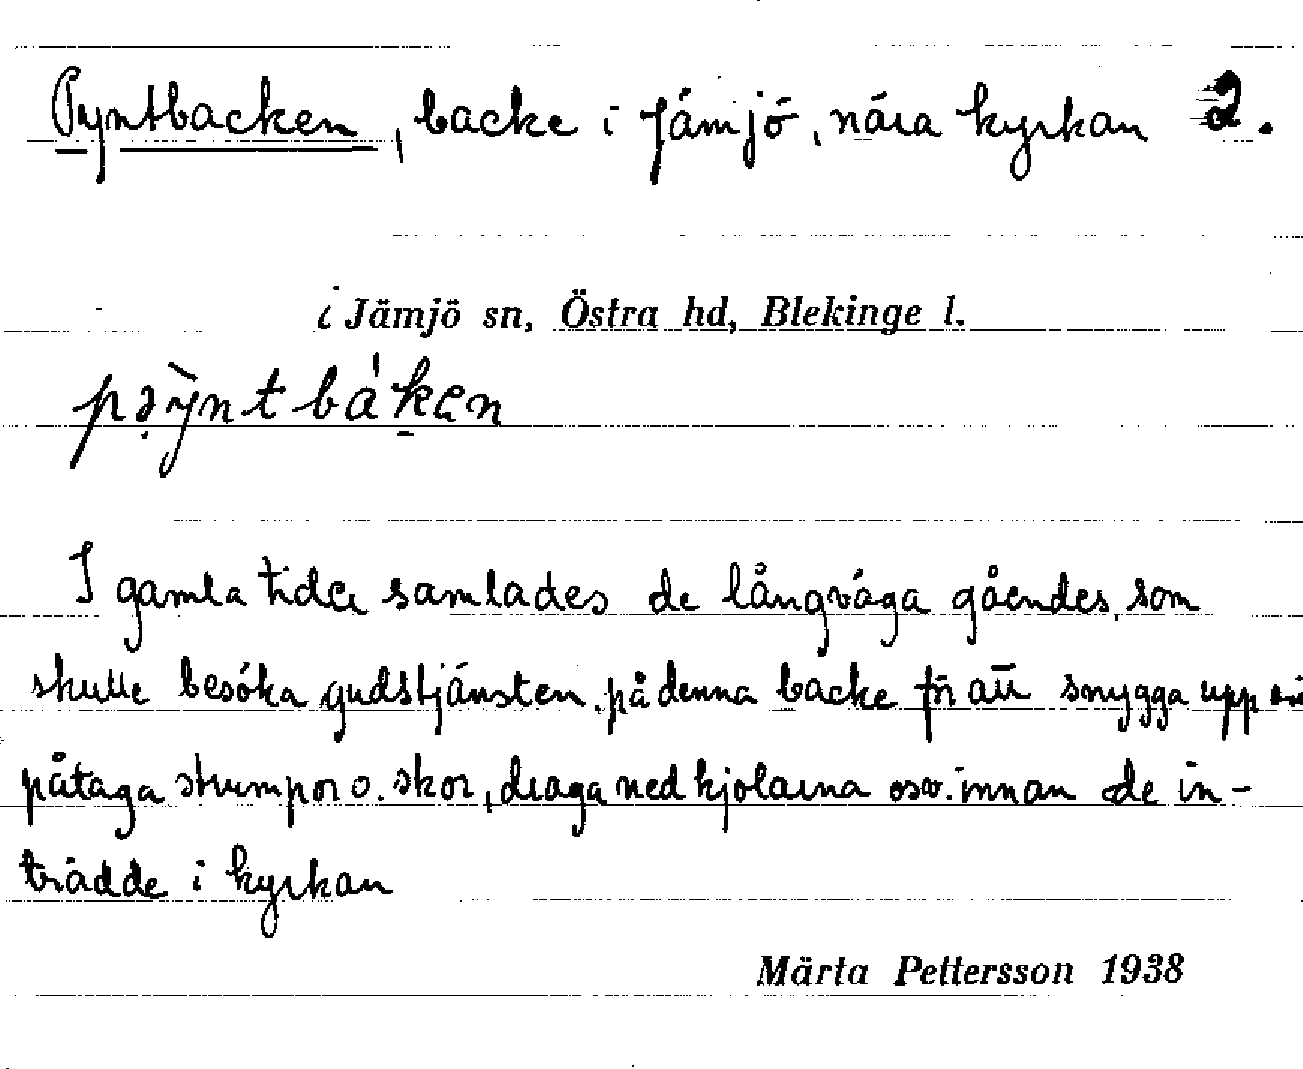 Pyntbacken, backe i Jämjö, nära kyrkan 2.
i Jämjö sn, Östra hd, Blekinge l.
pəỳntbákən
I gamla tider samlades de långväga gåendes, som
skulle besöka gudstjänsten, på denna backe för att snygga upp sig
påtaga strumpor o. skor, draga ned kjolarna osv. innan de in-
trädde i kyrkan
Märta Pettersson 1938